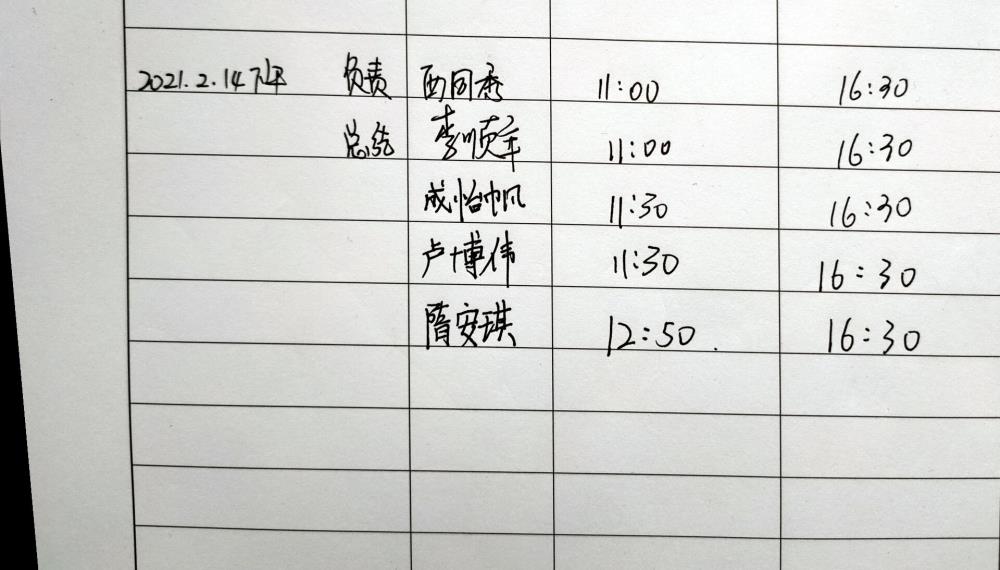 2021.2.14下午 负责 西同秀 11:00 16:30
总结 李顺军 11:00 16:30
成怡帆 11:30 16:30
卢博伟 11:30 16:30
隋安琪 12:50 16:30